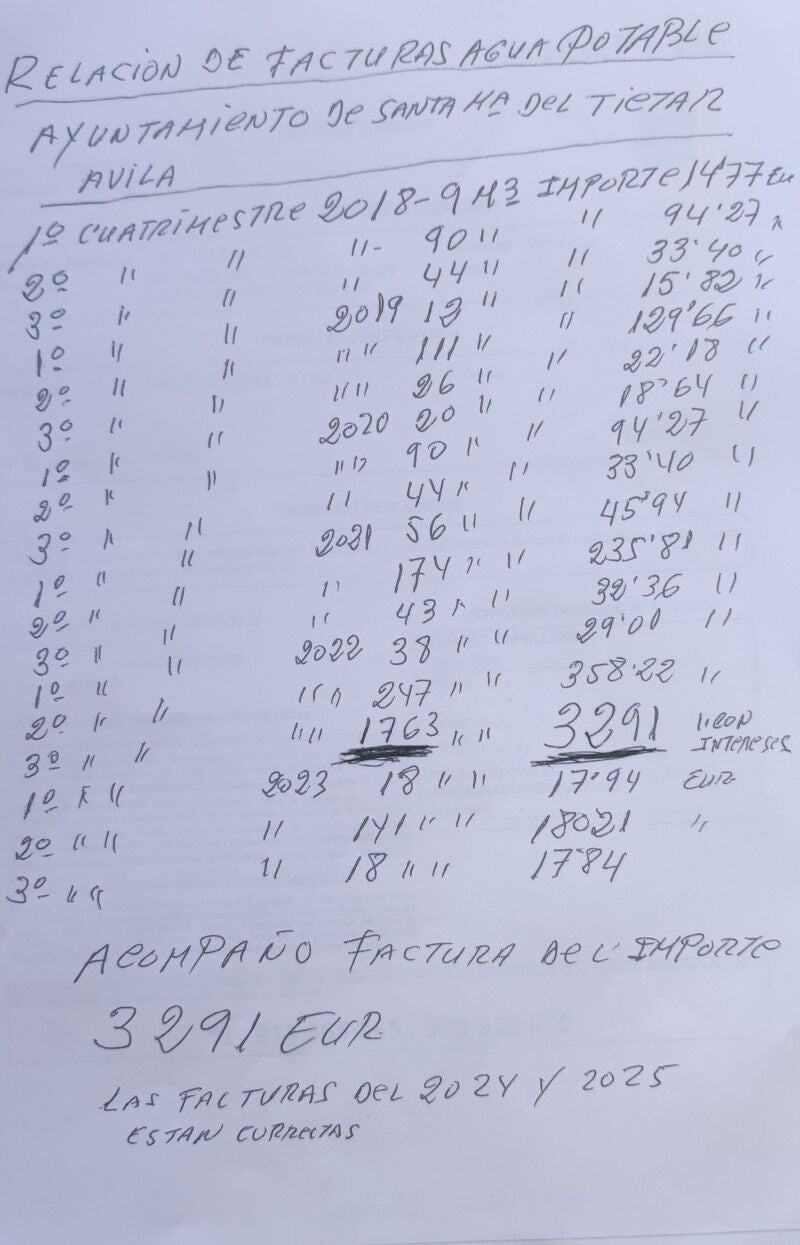 RELACION DE FACTURAS AGUA POTABLE
AYUNTAMIENTO DE SANTA Mª DEL TIETAR
AVILA
1º CUATRIMESTRE 2018 - 9 M3 IMPORTE 14'77 EU
2º " " "- 90 " " 94'27 "
3º " " " 44 " " 33'40 "
1º " " 2019 12 " " 15'82 "
2º " " " " 111 " " 129'66 "
3º " " " " 26 " " 22'18 "
1º " " 2020 20 " " 18'64 "
2º " " " " 90 " " 94'27 "
3º " " " 44 " " 33'40 "
1º " " 2021 56 " " 45'94 "
2º " " " 174 " " 235'81 "
3º " " " 43 " " 32'36 "
1º " " 2022 38 " " 29'01 "
2º " " " " 247 " " 358'22 "
3º " " " " 1763 " " 3291 " CON INTERESES
1º " " 2023 18 " " 17'94 EUR
2º " " " 141 " " 18021 "
3º " " " 18 " " 17'84
ACOMPAÑO FACTURA DEL IMPORTE
3291 EUR
LAS FACTURAS DEL 2024 Y 2025
ESTAN CURRECTAS